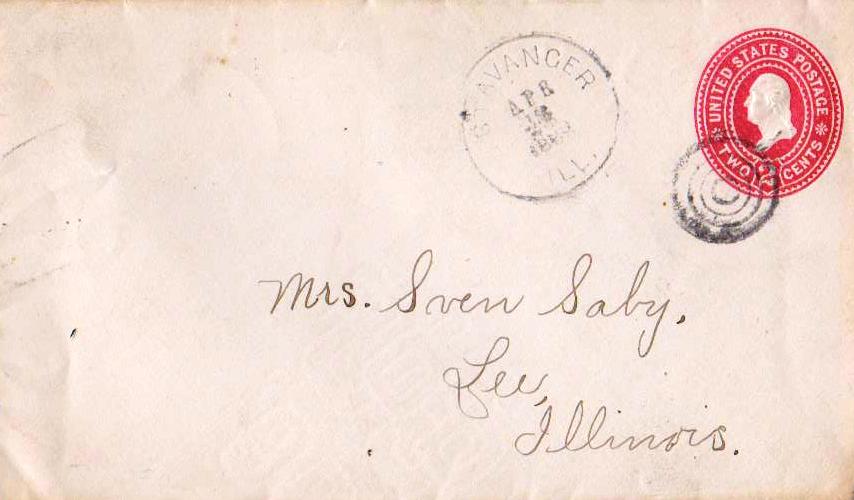 STAVANGER
APR
ILL.
UNITED STATES POSTAGE
TWO 2 CENTS
Mrs. Sven Saby,
Lee,
Illinois.